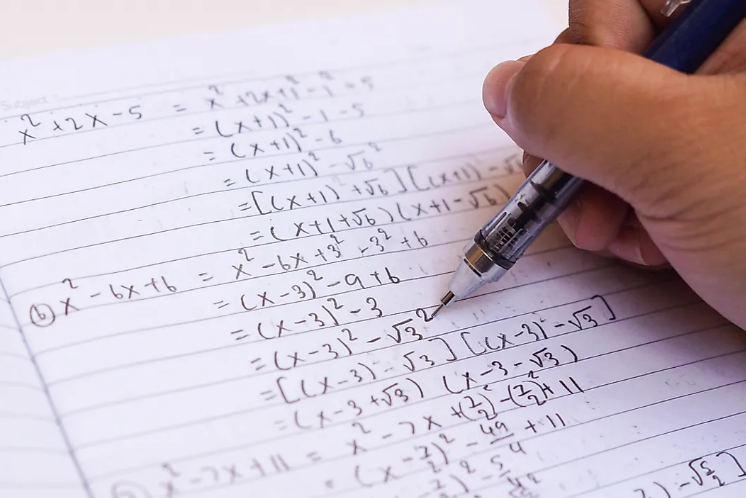 x² + 2x - 5 = x² + 2x + 1² - 1² - 5
= (x+1)² - 1 - 5
= (x+1)² - 6
= (x+1)² - √6²
= [(x+1) + √6] [(x+1) - √
= (x+1+√6) (x+1-√6)
(b) x² - 6x + 6 = x² - 6x + 3² - 3² + 6
= (x-3)² - 9 + 6
= (x-3)² - 3
= (x-3)² - √3²
= [(x-3) - √3] [(x-3) - √3]
= (x-3+√3) (x-3-√3)
x² - 7x + 11 = x² - 7x + (7/2)² - (7/2)² + 11
= (x - 7/2)² - 49/4 + 11
)² - 5/4